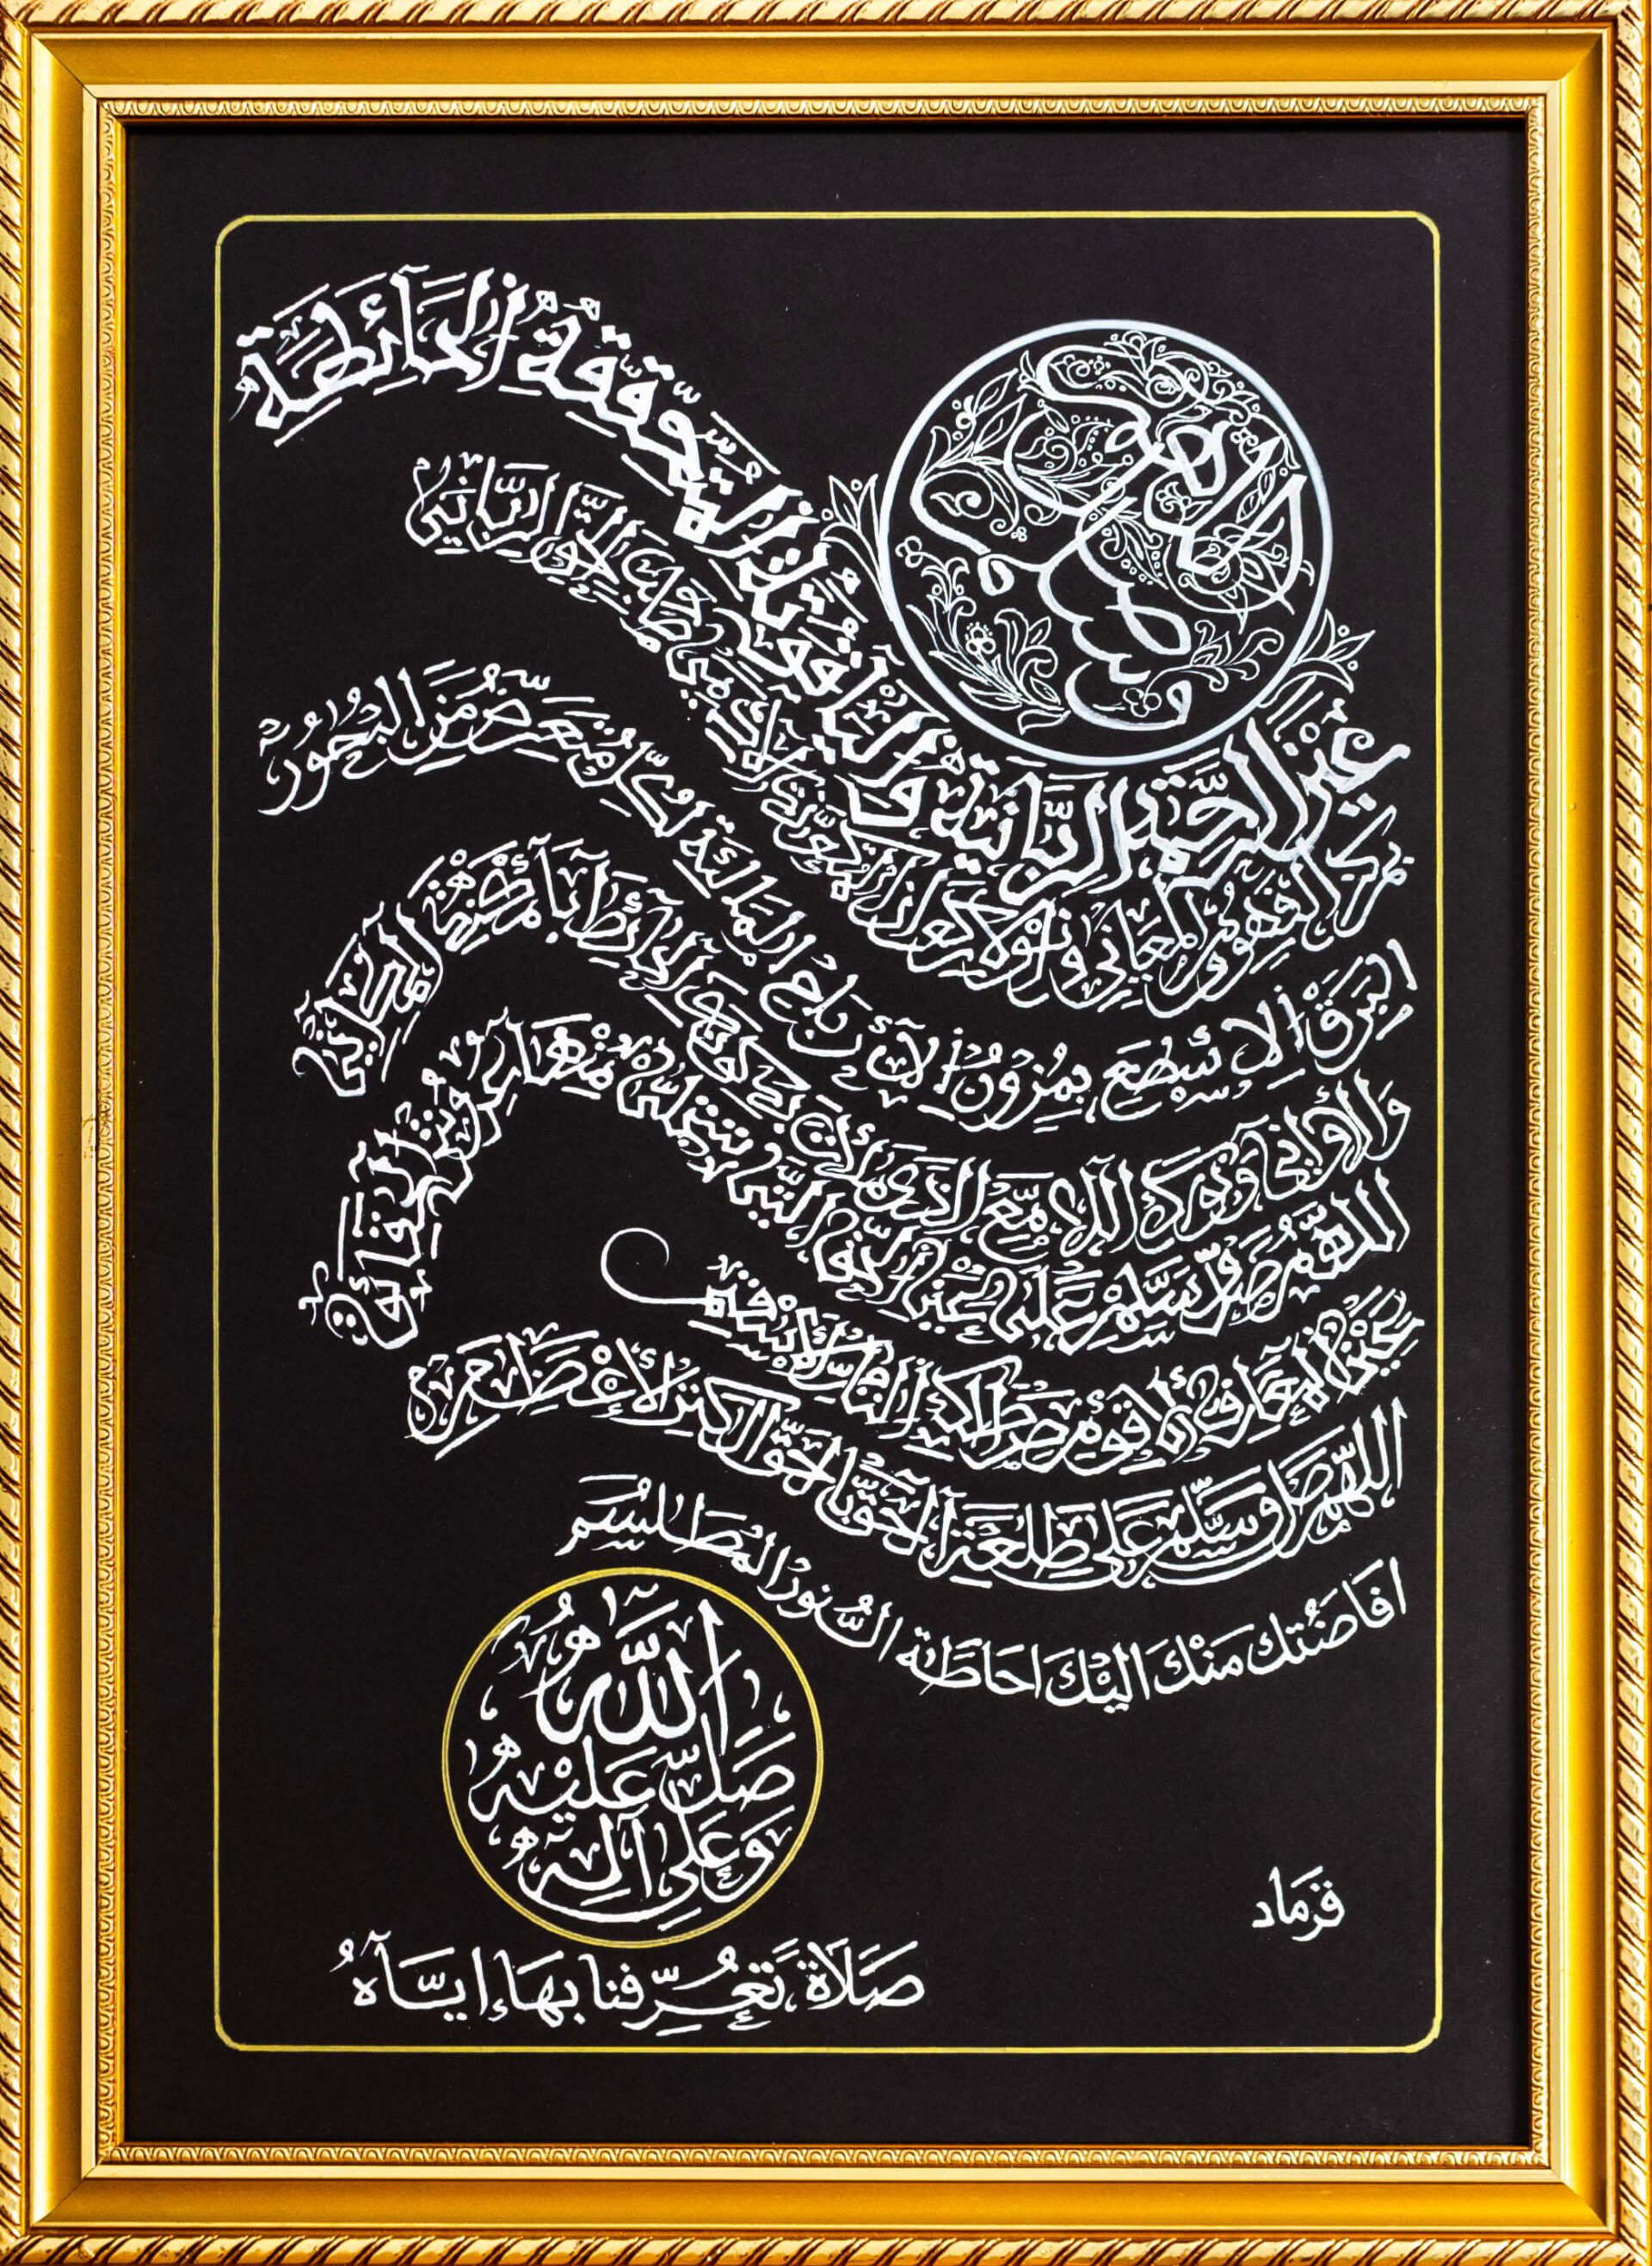 اللهم صل وسلم
عَيْنِ الرَّحْمَةِ الرَّبَّانِيَةِ وَالْيَاقُوتَةِ الْمُتَحَقِّقَةِ الْحَائِطَةِ
بمركز الفهوم والمعاني ونور الاكوان المتكونة الادمي صاحب الحق الرباني
البرق الاسطع بمزون الارباح المالئة لكل متعرض من البحور
والأواني ونورك اللامع الذي ملأت به كونك الحائط بأمكنة المكاني
اللهم صل وسلم على عين الحق التي تتجلى منها عروش الحقائق
عين المعارف الاقوم صراطك التام الاسقم
اللهم صل وسلم على طلعة الحق بالحق الكنز الاعظم
افاضتك منك اليك احاطة النور المطلسم
الله
صَلَّ عَلَيْهِ
وَعَلَى آلِهِ
صَلَاةً تُعَرِّفنا بِهَا إيَّاهُ
قرماد